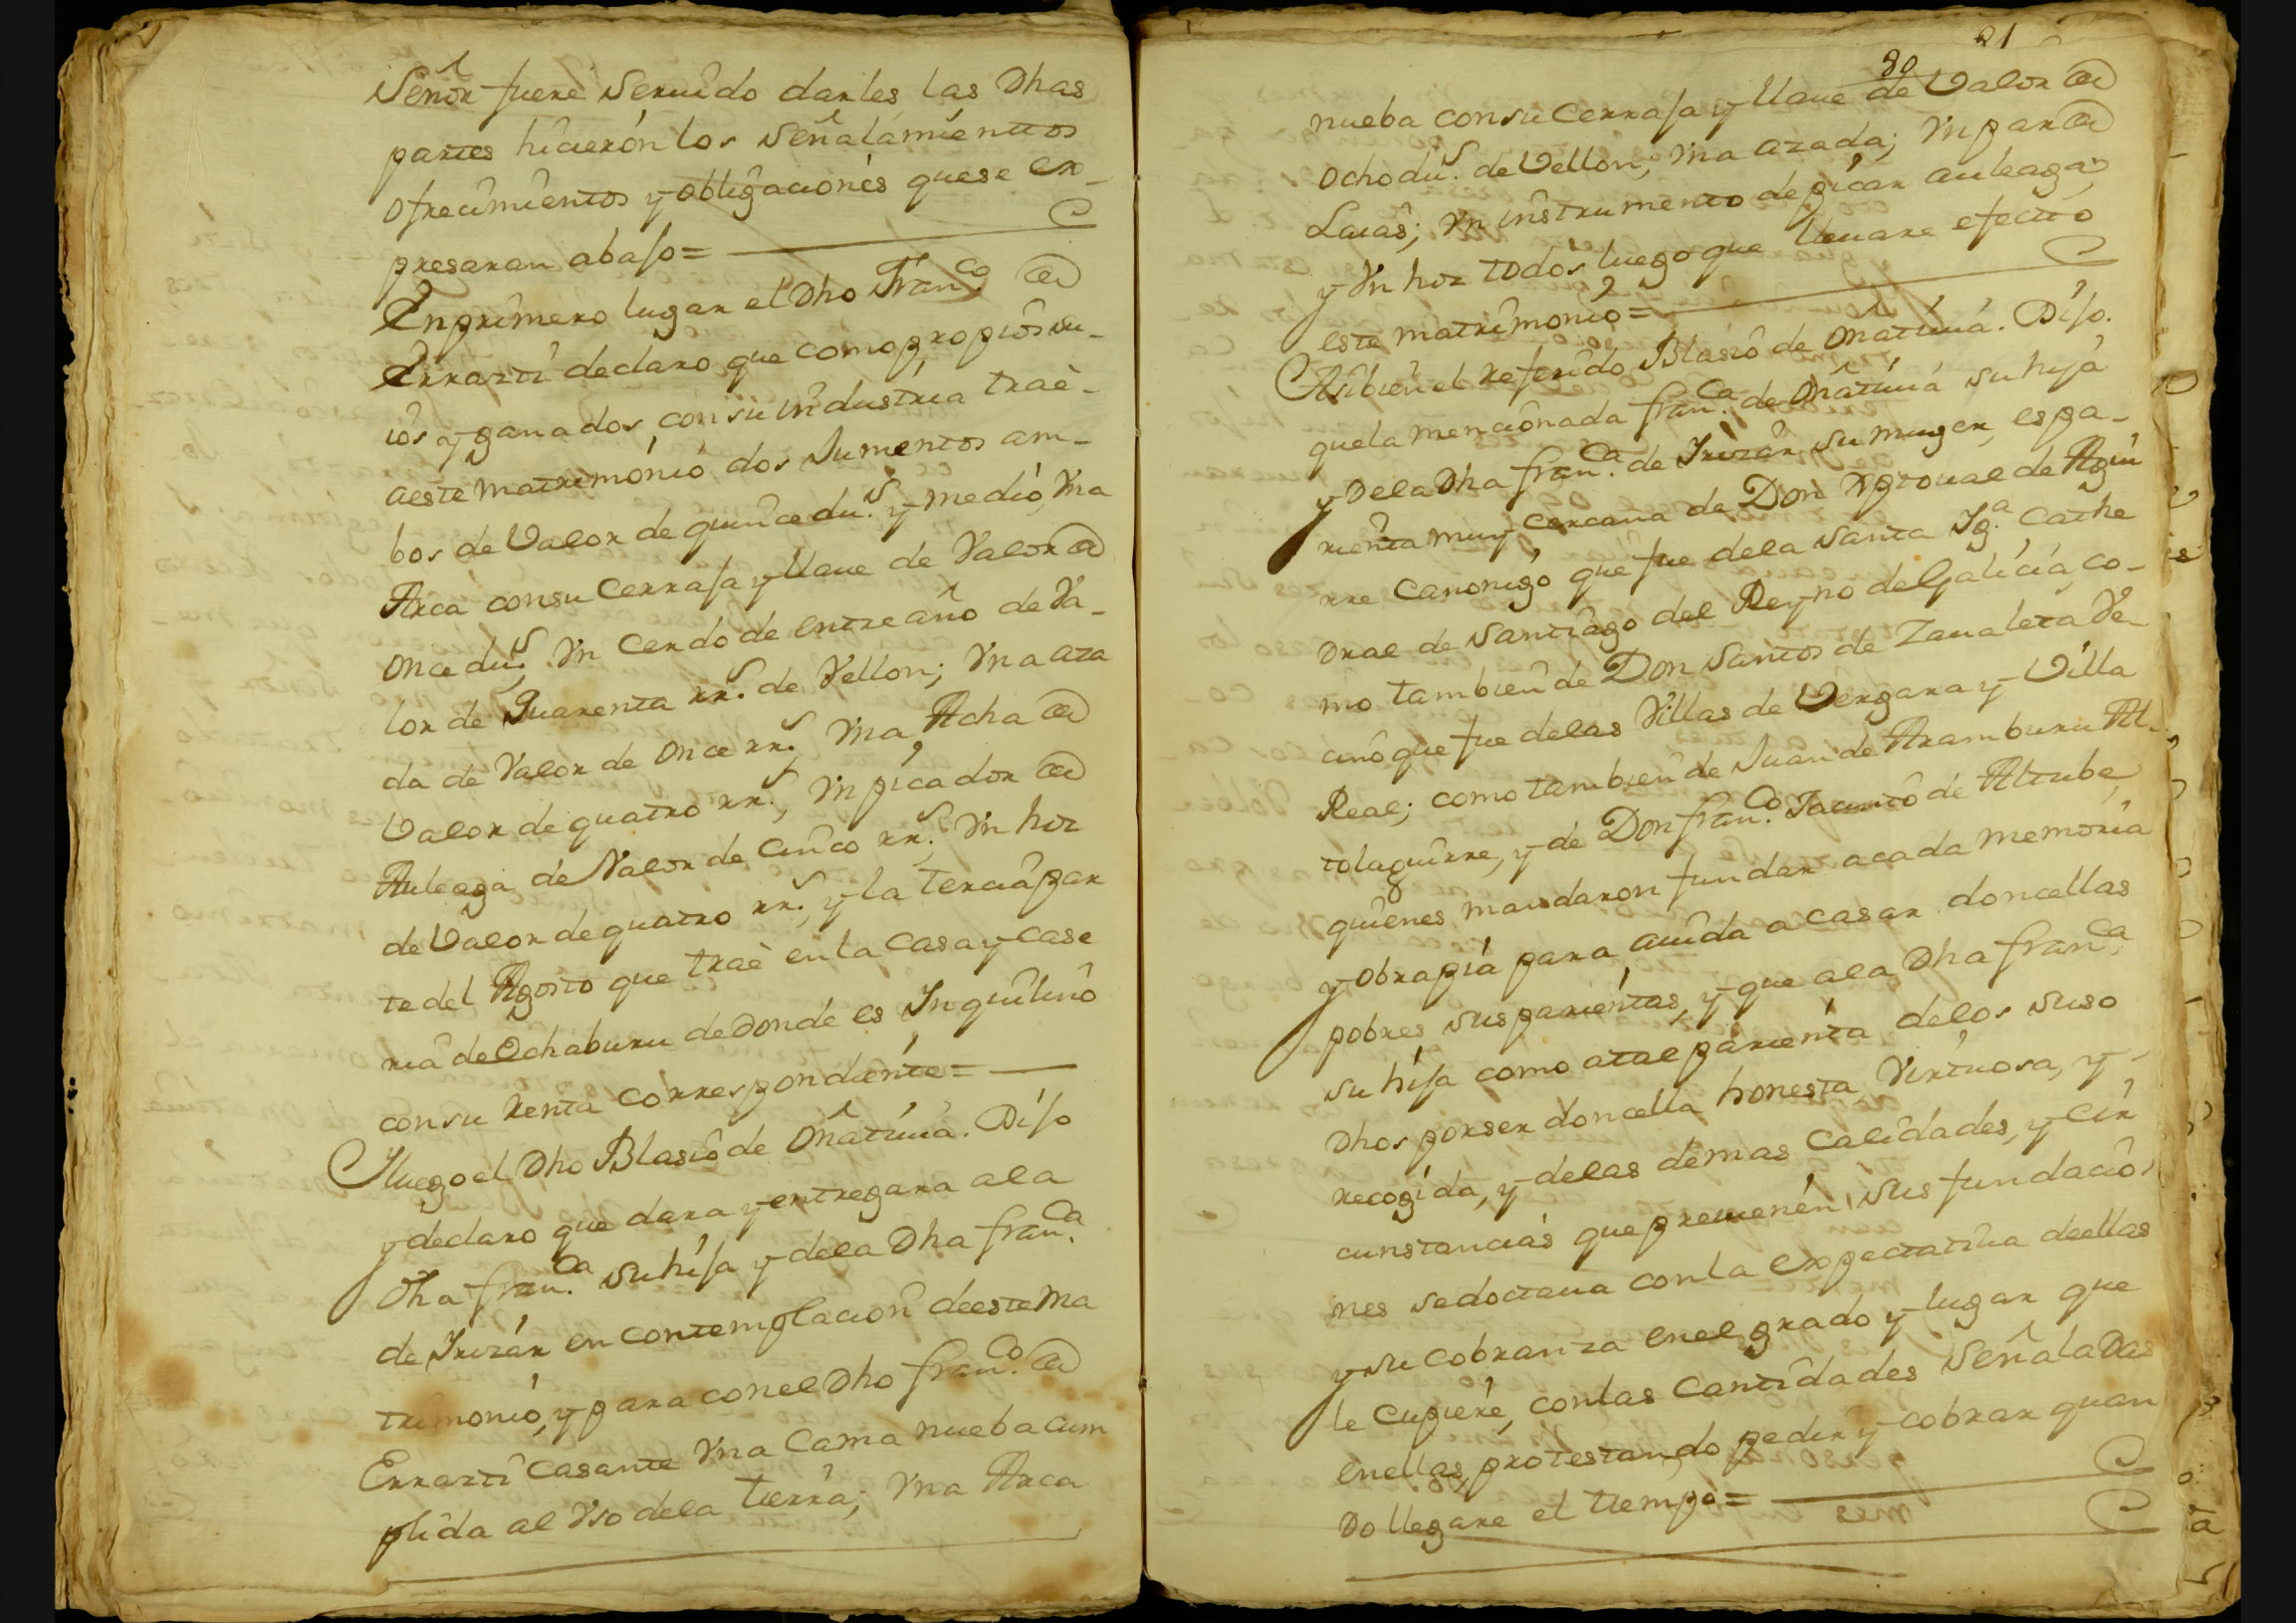 Señor fuere Seruido darles las Dhas
partes hicierón los Señalamientos
ofrecimientos y obligaciones que se ex_
presaran abaxo=
En primero lugar el Dho Fran.co de
Errazti declaro que como propiós su_
iós y ganados con su industria traè_
a este matrimónió dos Jumentos am_
bos de Valor de quince du.s y medio, Vna
Arca con su Cerraja y llaue de Valor de
once du.s, Vn Cerdo de entre año de Va_
lor de Quarenta rr.s de Vellon; Vna aza
da de Valor de once rr.s, Vna Acha de
Valor de quatro rr.s, Vn picador de
Auleaga de Valor de Cinco rr.s, Vn hoz
de Valor de quatro rr.s, y la tercia par
te del Agosto que traè en la Casa y Case
ria de Ochaburu de donde es Inquilino
con su Renta correspondiente=
Y luego el Dho Blasio de Oñatiuiá. Dijo
y declaro que dara y entregara a la
Dha fran.ca su hija y de la Dha fran.ca
de Irizár en contemplacion de este Ma
trimonió, y para con el Dho fran.co de
Errazti Casante Vna Cama nueba cum
plida al Vso de la tierra; Vna Arca
81
80
nueba con su Cerraja y llaue de Valor de
ocho du.s de Vellon; Vna azada; Vn par de
Laias; Vn instrumento de picar auleaga,
y Vn hoz todos luego que lleuare efecto
este matrimonio=
Asibien el referido Blasio de Oñatiuiá. Dijo.
que la mencionada fran.ca de Oñatiuiá su hija
y de la Dha fran.ca de Irizár su muger, es pa_
rienta muy cercana de Don Xptoual de Aguir
rre Canonigo que fue de la Santa Ig.a Cathe
dral de Santiago del Reyno de Galicia, co_
mo tambien de Don Santos de Zaualeta Ve_
cino que fue de las Villas de Vergara y Villa
Real; como tambien de Juan de Aramburu Al_
tolaguirre, y de Don fran.co Jacinto de Altube,
quienes mandaron fundar a cada memória
y obrapiá para auida a casar doncellas
pobres sus parientas, y que a la Dha fran.ca
su hija como a tal párienta de los suso
Dhos por ser doncella honesta, Virtuosa, y_
recogida, y de las demas Calidades, y Cir
cunstancias que preuienén sus fundacio
nes se doctaua con la expectatiua de ellas
y su cobranza en el grado y lugar que
le cupiere, con las Cantidades Señaladas
en ellas, protestando pedir y cobrar quan
do llegare el tiempo=